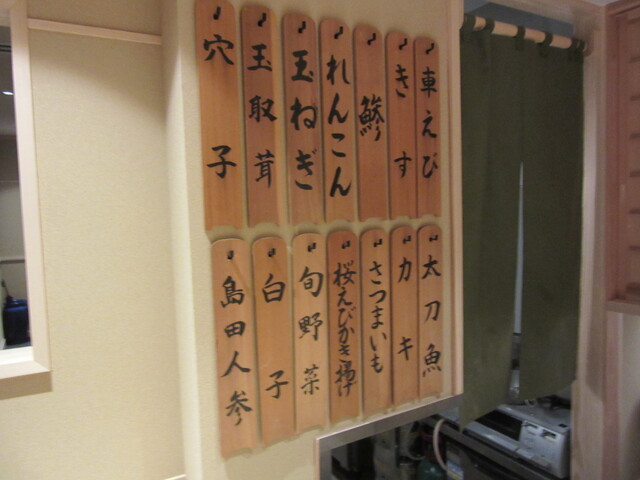 車えび
きす
鯵
れんこん
玉ねぎ
玉取茸
穴子
太刀魚
カキ
さつまいも
桜えびかき揚げ
旬野菜
白子
島田人参